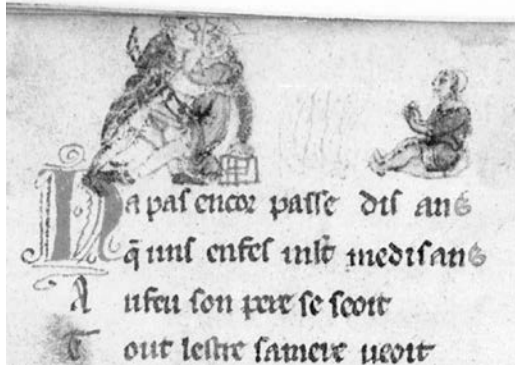 Na pas encor passe dis ans
q̃ uns enfes ml̃t medisans
A ufeu son pere se seoit
T out lestre samere ueoit